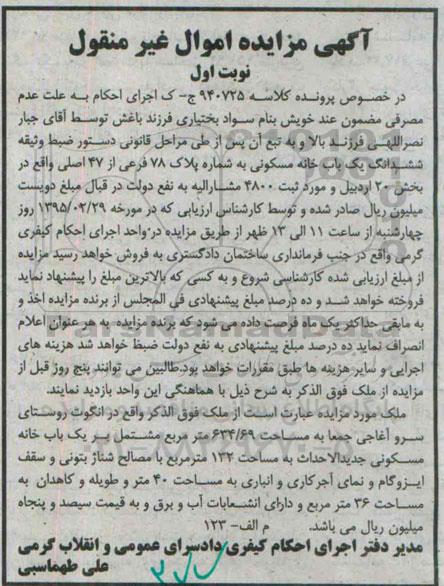 آگهی مزایده اموال غیر منقول
نوبت اول
در خصوص پرونده کلاسه ۹۴۰۷۲۵ ج- ک اجرای احکام به علت عدم
معرفی مضمون عند خویش بنام سواد بختیاری فرزند باغش توسط آقای جبار
نصراللهی فرزند بالا و به تبع آن پس از طی مراحل قانونی دستور ضبط وثیقه
ششدانگ یک باب خانه مسکونی به شماره پلاک ۷۸ فرعی از ۴۷ اصلی واقع در
بخش ۲۰ اردبیل و مورد ثبت ۴۸۰۰ مشارالیه به نفع دولت در قبال مبلغ دویست
میلیون ریال صادر شده و توسط کارشناس ارزیابی که در مورخه ۱۳۹۵/۰۲/۲۹ روز
چهارشنبه از ساعت ۱۱ الی ۱۳ ظهر از طریق مزایده در واحد اجرای احکام کیفری
گرمی واقع در جنب فرمانداری ساختمان دادگستری به فروش خواهد رسید مزایده
از مبلغ ارزیابی شده کارشناسی شروع و به کسی که بالاترین مبلغ را پیشنهاد نماید
فروخته خواهد شد و ده درصد مبلغ پیشنهادی فی المجلس از برنده مزایده اخذ و
به مابقی حداکثر یک ماه فرصت داده می شود که برنده مزایده به هر عنوان اعلام
انصراف نماید ده درصد مبلغ پیشنهادی به نفع دولت ضبط خواهد شد هزینه های
اجرایی و سایر هزینه ها طبق مقررات خواهد بود.طالبین می توانند پنج روز قبل از
مزایده از ملک فوق الذکر به شرح ذیل با هماهنگی این واحد بازدید نمایند.
ملک مورد مزایده عبارت است از ملک فوق الذکر واقع در انگوت روستای
سرو آغاجی جمعا به مساحت ۶۳۴/۶۹ متر مربع مشتمل بر یک باب خانه
مسکونی جدیدالاحداث به مساحت ۱۳۲ مترمربع با مصالح شناژ بتونی و سقف
ایزوگام و نمای آجرکاری و انباری به مساحت ۴۰ متر و طویله و کاهدان به
مساحت ۳۶ متر مربع و دارای انشعابات آب و برق و به قیمت سیصد و پنجاه
میلیون ریال می باشد. م الف- ۱۲۳
مدیر دفتر اجرای احکام کیفری دادسرای عمومی و انقلاب گرمی
علی طهماسبی